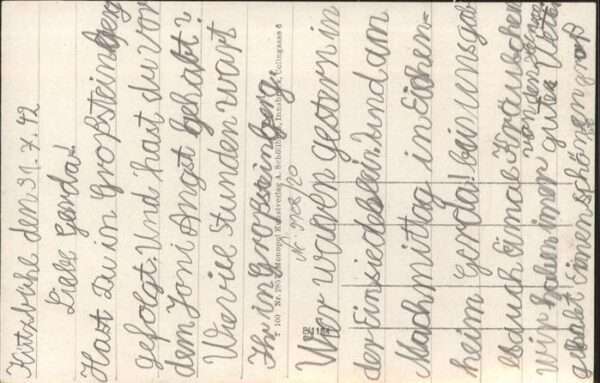 Kitzbühe den 31.7.42
Liebe Gerda!
Hast Du in Großsteinberg
gefolgt. Und hast du vor
dem Joni Angst gehabt?
Wieviele Stunden wart
Ihr in Grossteinberg.
Wier waren gestern in
der Einsiedelein. Und am
Nachmittag in Eichen=
heim Gerda! bei uns gab
es auch einmal Kräuschen
von den
wir haben imer gutes Wetter
gehabt Einen schönen gruß
T 100 Nr. 780 Monopol Kunstverlag A. Schöllhorn, Innsbruck, Kolingasse 6
Nr. 9708/20